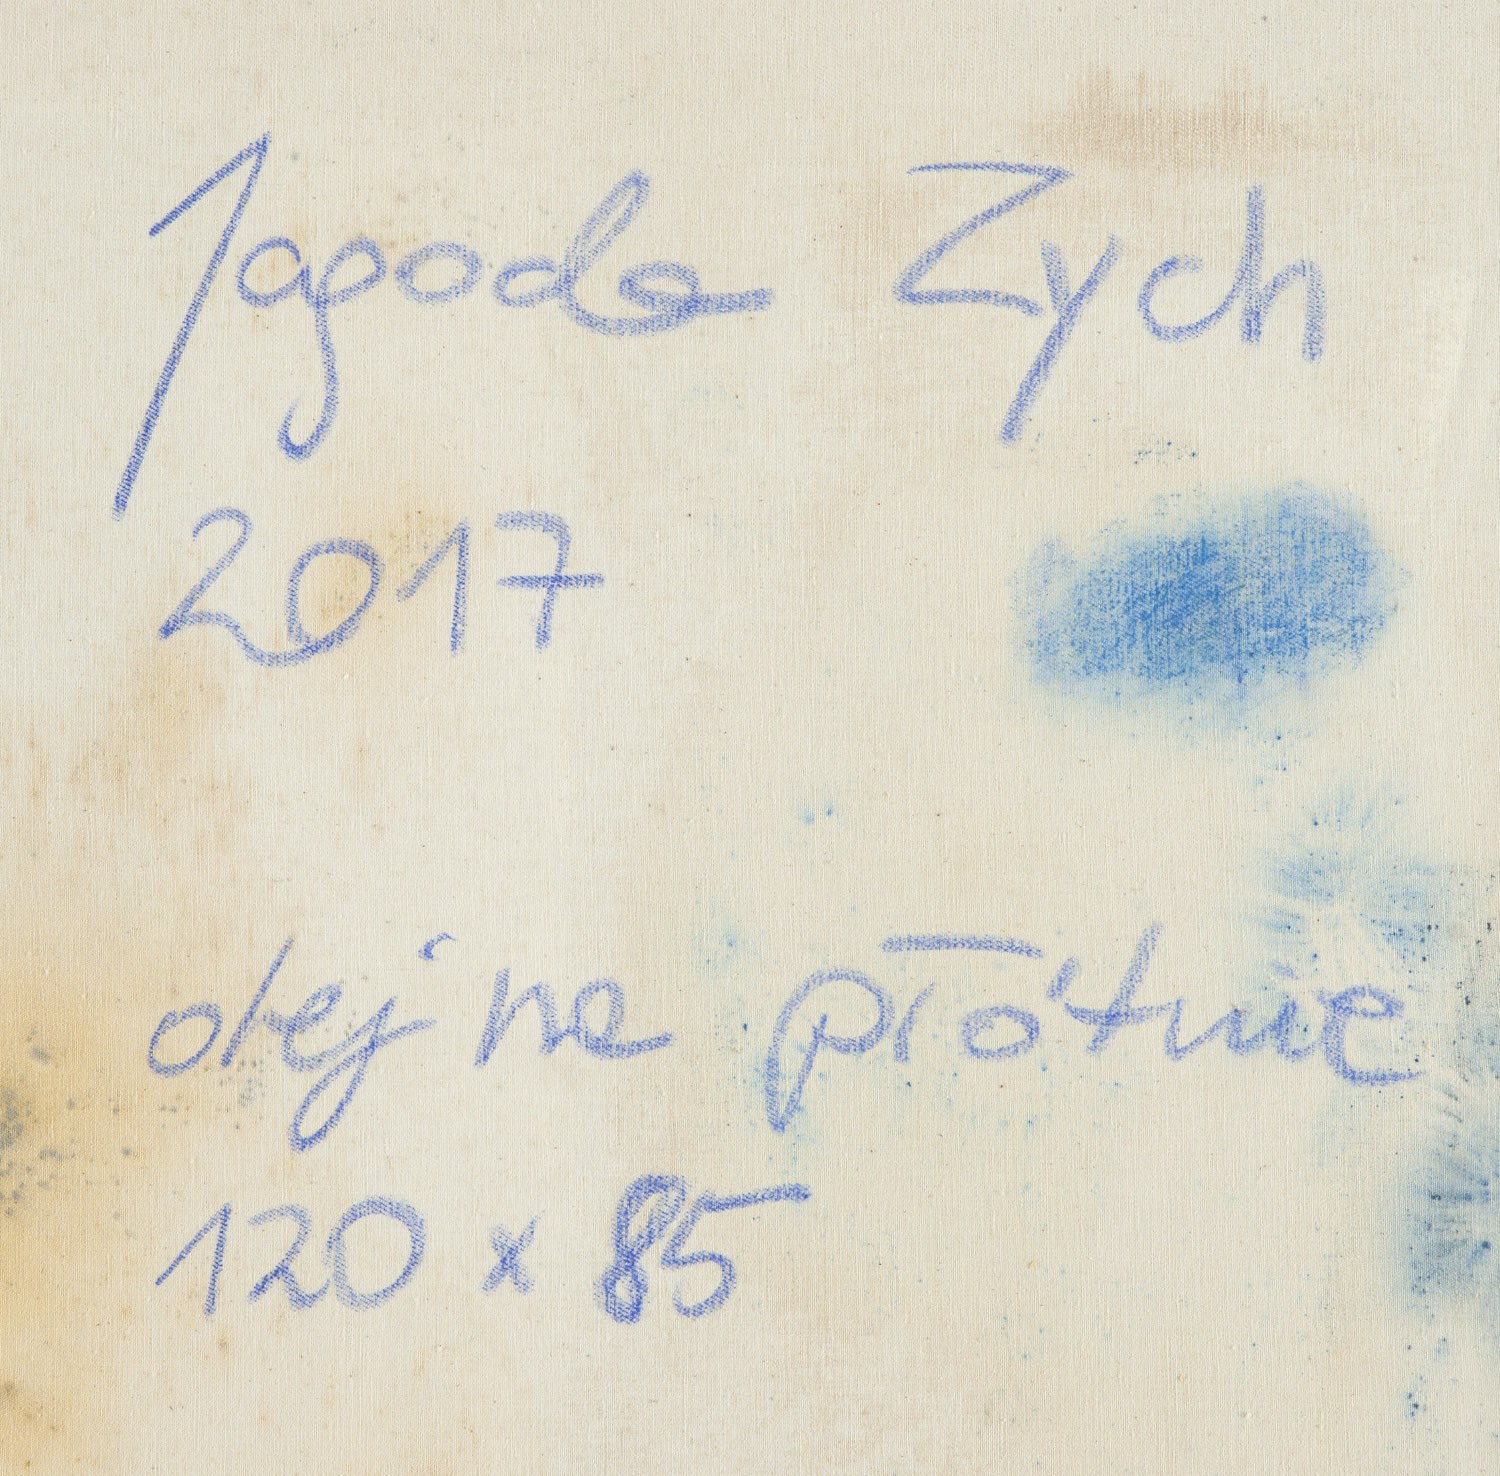 Jagoda Zych
2017
olej na płótnie
120 x 85